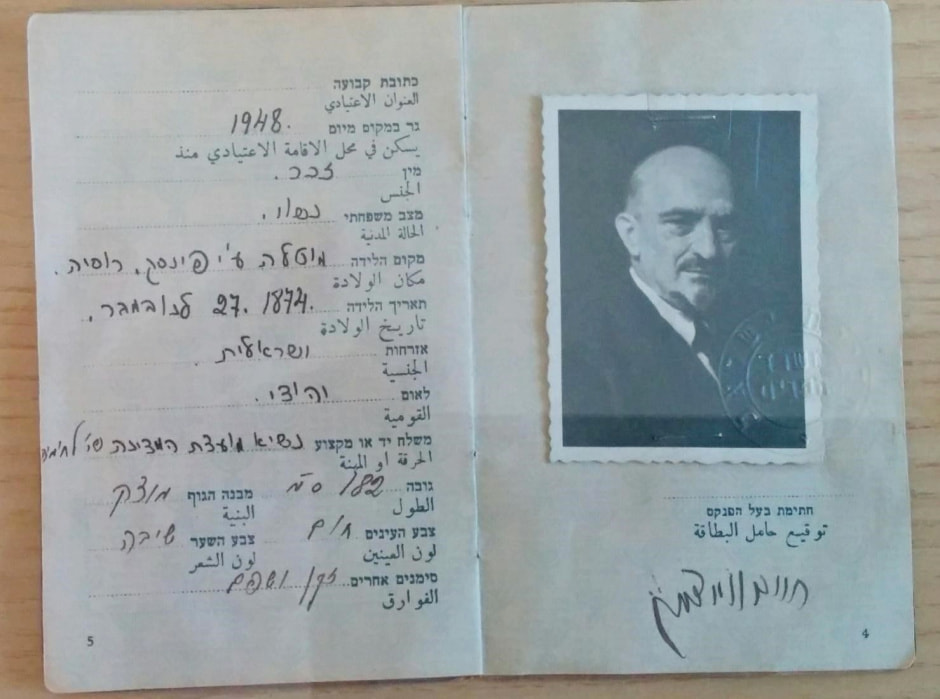 חתימת בעל הפנקס
توقيع حامل البطاقة
חיים וויצמן
4
כתובת קבועה
العنوان الاعتيادي
גר במקום מיום 1948.
يسكن في محل الاقامة الاعتيادي منذ
מין זכר.
الجنس
מצב משפחתי נשוי.
الحالة المدنية
מקום הלידה מוטלה ע"י פינסק, רוסיה.
مكان الولادة
תאריך הלידה 27. 1874. לנובמבר.
تاريخ الولادة
אזרחות ישראלית.
الجنسية
לאום יהודי.
القومية
משלח יד או מקצוע נשיא מועצת המדינה
الحرفة او المهنة
גובה 182 ס"מ מבנה הגוף מוצק
الطول البنية
צבע העינים חום צבע השער שיבה
لون العينين لون الشعر
סימנים אחרים זקן ושפם
الفوارق
5